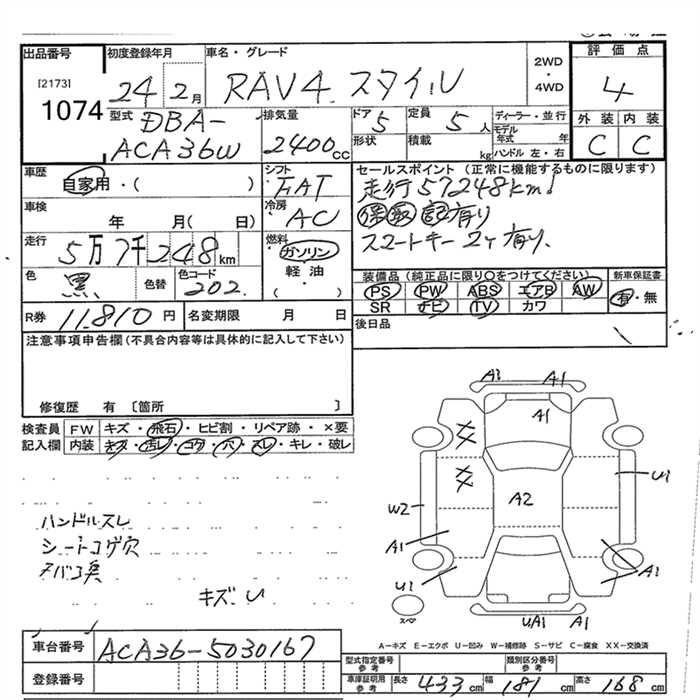 出品番号
[2173]
1074
初度登録年月
24 2月
車名・グレード
RAV4 スタイル
2WD
・
4WD
評価点
4
外装 内装
C C
型式
DBA-
ACA36W
排気量
2400 CC
ドア 5
形状
定員 5 人
積載 kg
ディーラー・並行
モデル年式 年
ハンドル 左・右
車歴
自家用・( )
シフト
FAT
冷房
AC
セールスポイント (正常に機能するものに限ります)
走行57248km!
保取記有り
スマートキー2ヶ有り、
車検
年 月( 日)
走行
5万7千248km
燃料
ガソリン
軽油
・
( )
色
黒
色替
色コード
202
装備品 (純正品に限り○をつけてください)
PS PW ABS エアB AW
SR ナビ TV カワ
新車保証書
有・無
R券 11,810 円
名変期限 月 日
後日品
注意事項申告欄 (不具合内容等は具体的に記入して下さい)
修復歴 有 〔箇所 〕
検査員 FW キズ・飛石・ヒビ割・リペア跡・×要
記入欄 内装 キズ・汚レ・コゲ・穴・スレ・キレ・破レ
ハンドルスレ
シートコゲ穴
タバコ臭
キズ・U
A1 A1
A1
XX
XX
A2
U1
W2
A1
U1
A1
UA1 A1
スペ
A-キズ E-エクボ U-凹み W-補修跡 S-サビ C-腐食 XX-交換済
車台番号 ACA36-5030167
登録番号
型式指定番号
参考
類別区分番号
参考
車庫証明用
参考
長さ 433 cm 幅 181 cm 高さ 168 cm